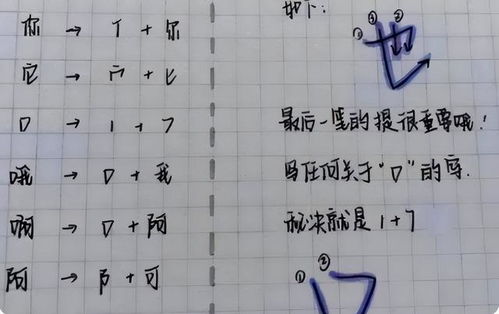 你 → 亻 + 尔
它 → 宀 + 匕
口 → 1 + 7
哦 → 口 + 我
啊 → 口 + 阿
阿 → 阝 + 可
如下:
① ③ ②
最后一笔的提很重要哦!
写任何关于“口”的字.
秘决就是 1 + 7
① ②